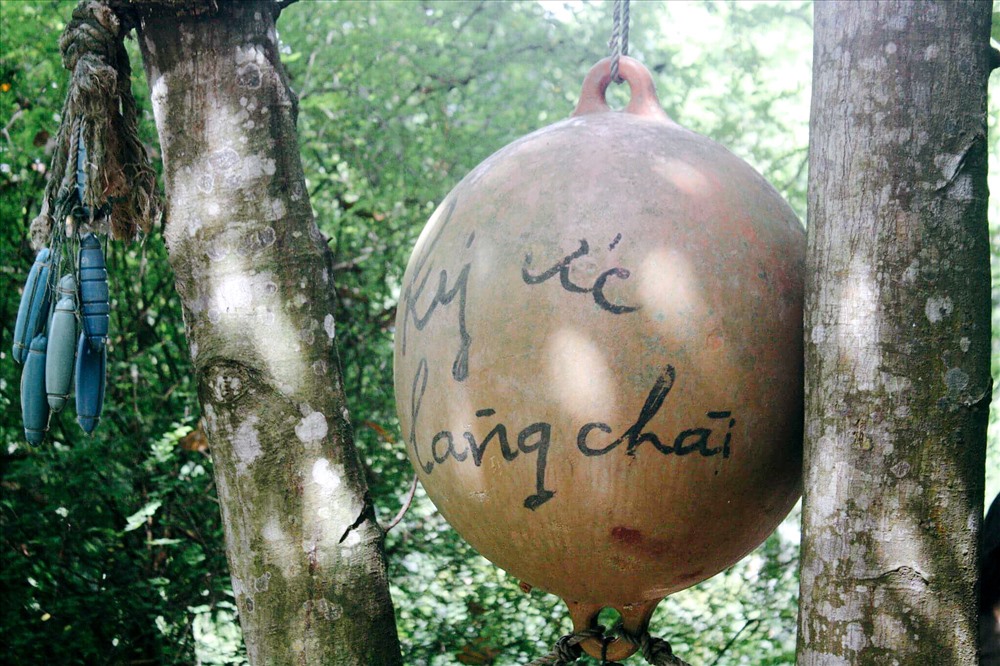 ký ức
làng chài